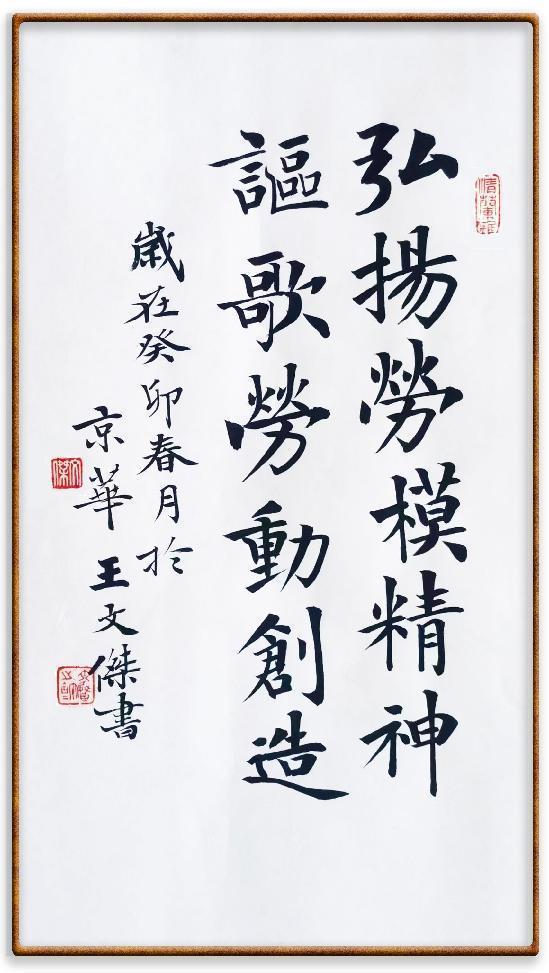 弘揚勞模精神
謳歌勞動創造
歲在癸卯春月於
京華王文傑書